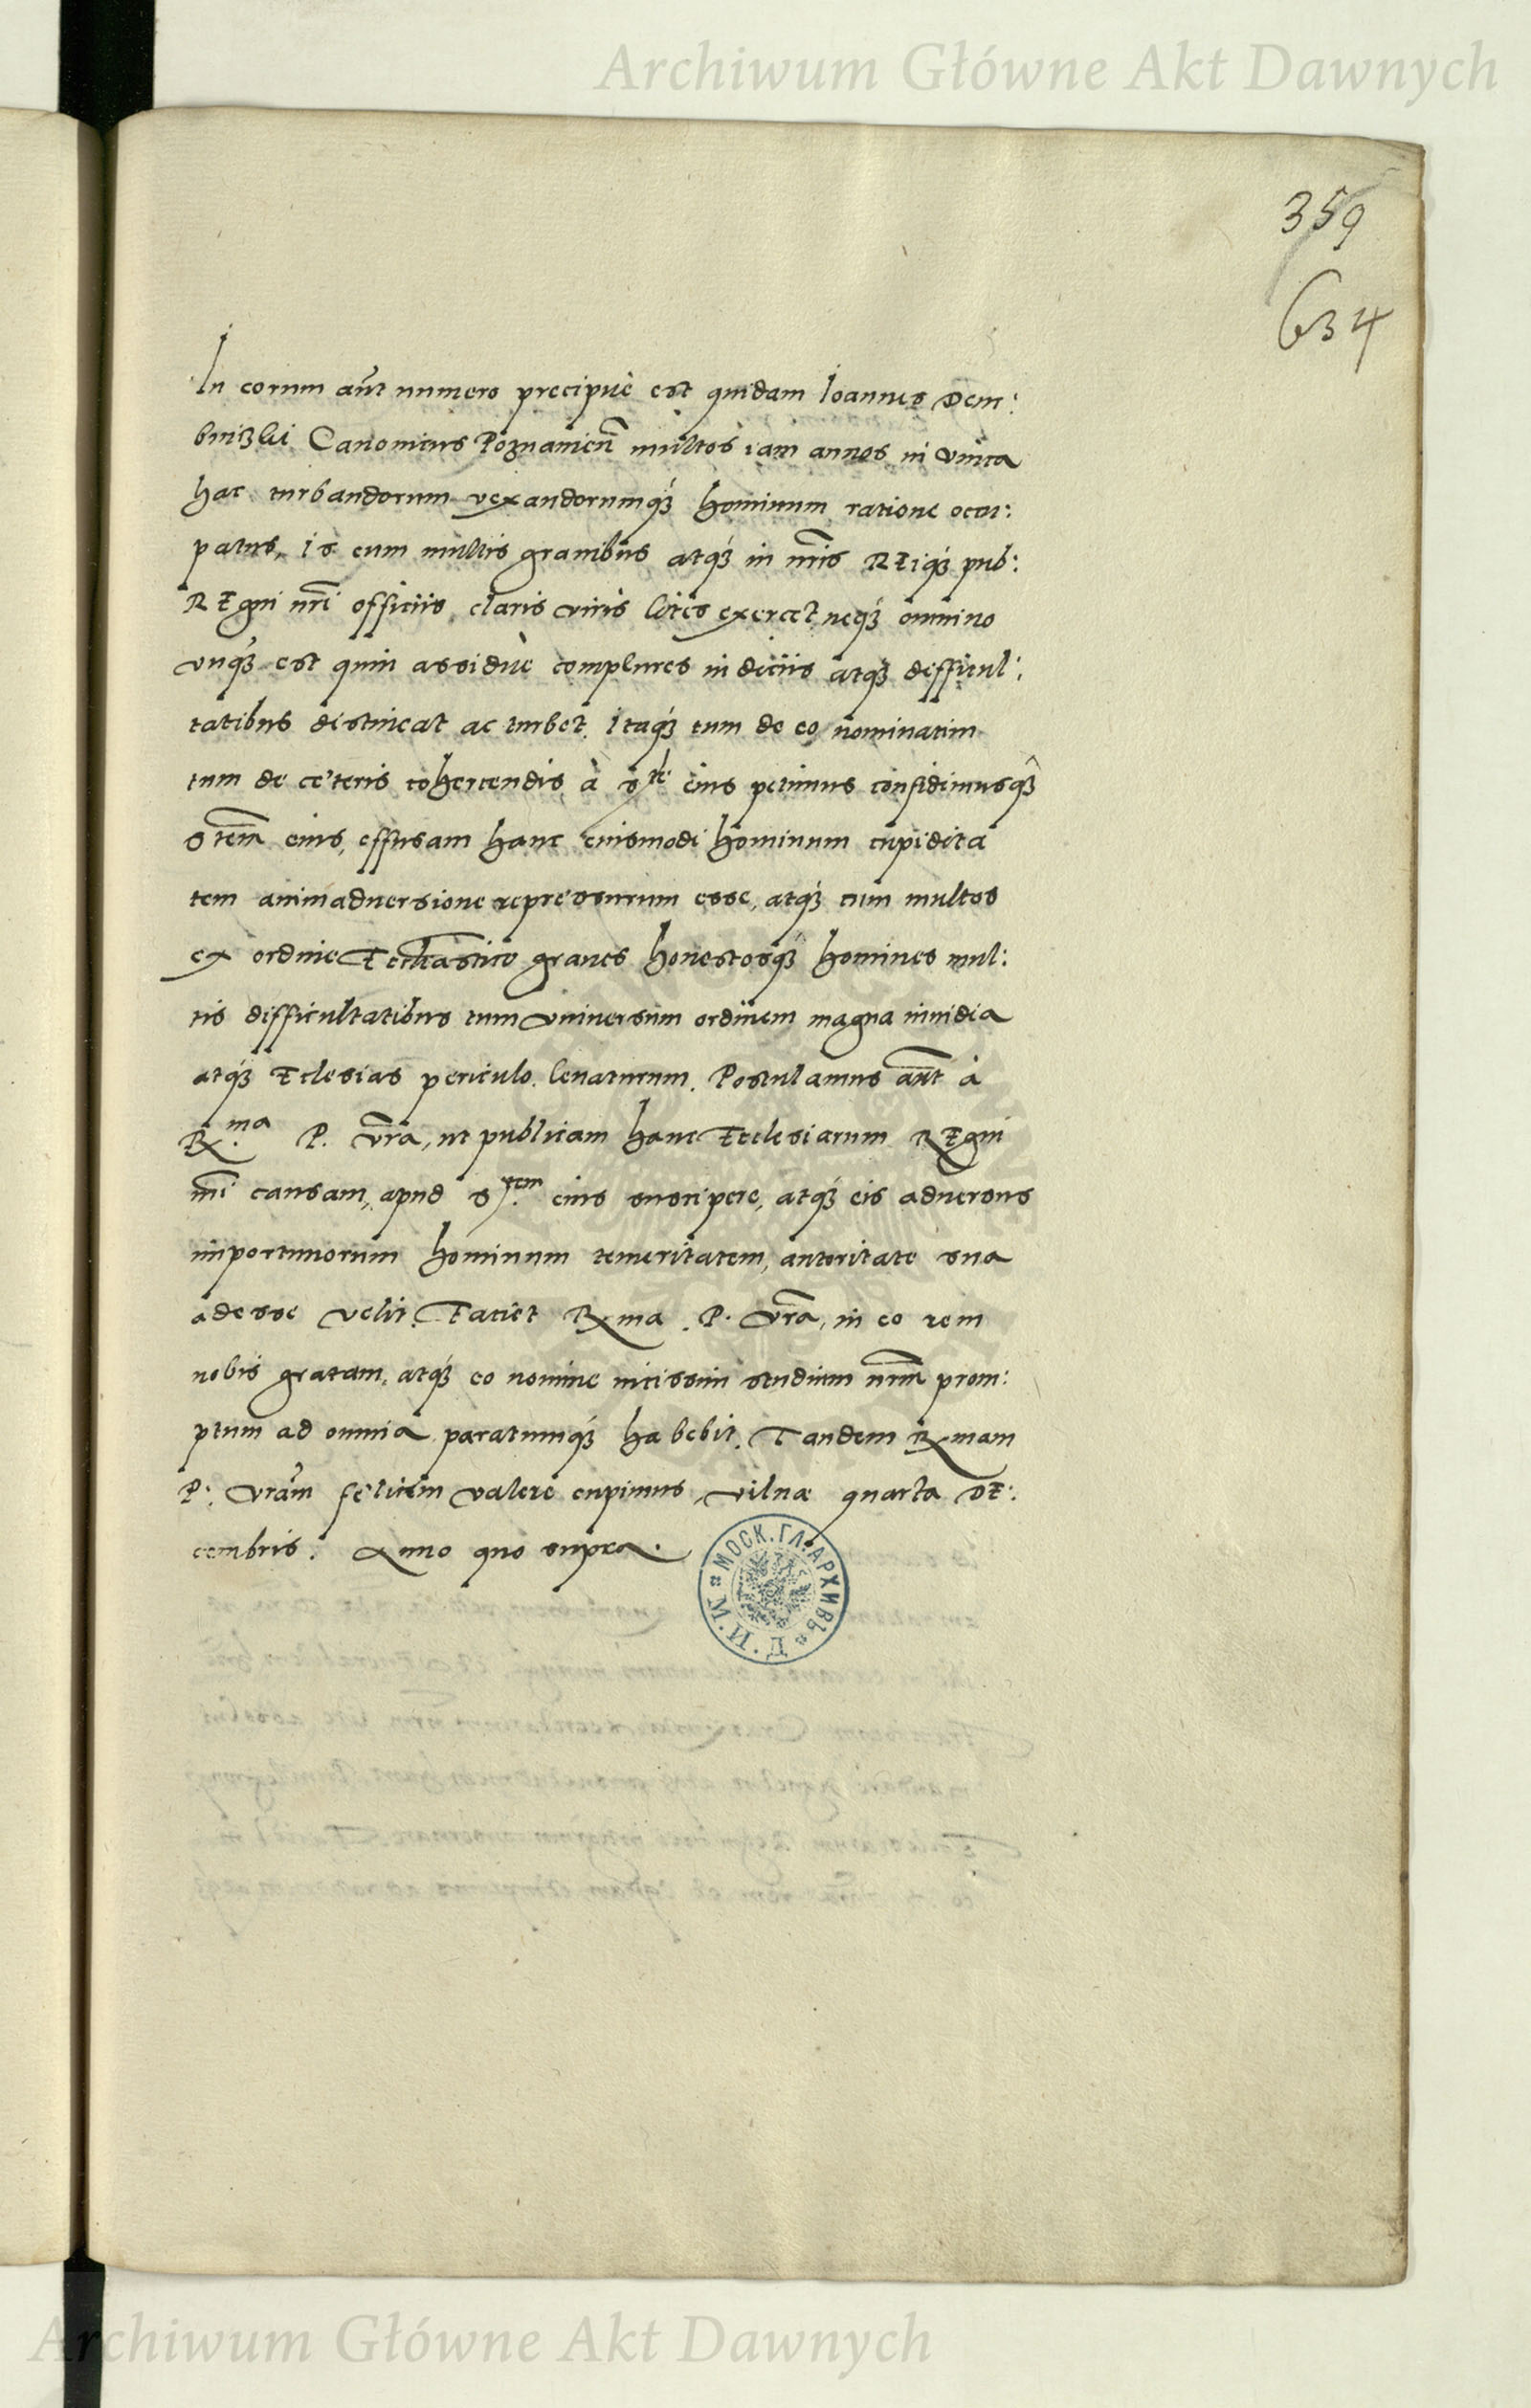 Archiwum Główne Akt Dawnych
359
634
In eorum aũt numero precipuè est quidam Ioannes Dem:
binszki Canonicus Poznanieñ multos iam annos in vnica
hac turbandorum vexandorumq́ʒ hominum ratione occu:
patus, is cum multis grauibus atq́ʒ in nr̃is REiq́ʒ pub:
REgni nr̃i officiis claris viris lites exercet neq́ʒ omnino
vnq́ʒ est quin assiduè complures iudiciis atq́ʒ difficul:
tatibus distineat ac turbet. Itaq́ʒ tum de eo nominatim
tum de ceteris cohercendis à S.te eius petimus confidimusq́ʒ
Stem̃ eius, effusam hanc eiusmodi hominum cupidita
tem animaduersione repressurum esse, atq́ʒ cum multos
ex ordine Ecclĩastico graues honestosq́ʒ homines mul:
tis difficultatibus tum vniuersum ordinem magna inuidia
atq́ʒ Eclesias periculo leuaturum. Postulamus aũt à
R.ma P. vr̃a, ut publicam hanc Ecclesiarum REgni
nr̃i causam, apud S.tem eius suscipere, atq́ʒ eis aduersus
importunorum hominum temeritatem, autoritate sua
adesse velit. Faciet Rma P. vr̃a, in eo rem
nobis gratam, atq́ʒ eo nomine uicissim studium nr̃m prom:
ptum ad omnia paratumq́ʒ habebit. Tandem Rmam
P. vr̃am felicem valere cupimus, vilnæ quarta DE:
cembris. Anno quo supra.
МОСК. ГЛ. АРХИВЪ М. И. Д.
Archiwum Główne Akt Dawnych